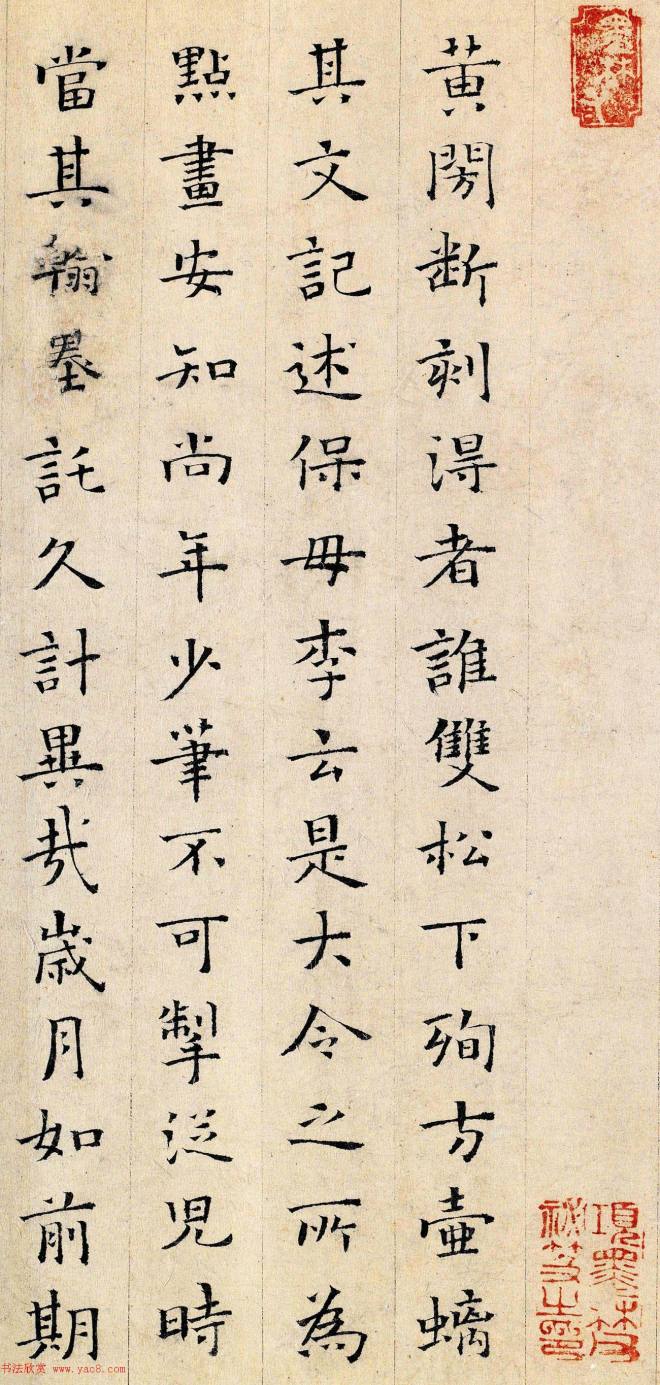 黄閍断刻淂者誰雙松下殉方壷螭
其文記述保毋李云是大令之所為
點畫安知尚年少筆不可掣従児時
當其翰墨託久計異㢤嵗月如前期
书法欣赏 www.yac8.com